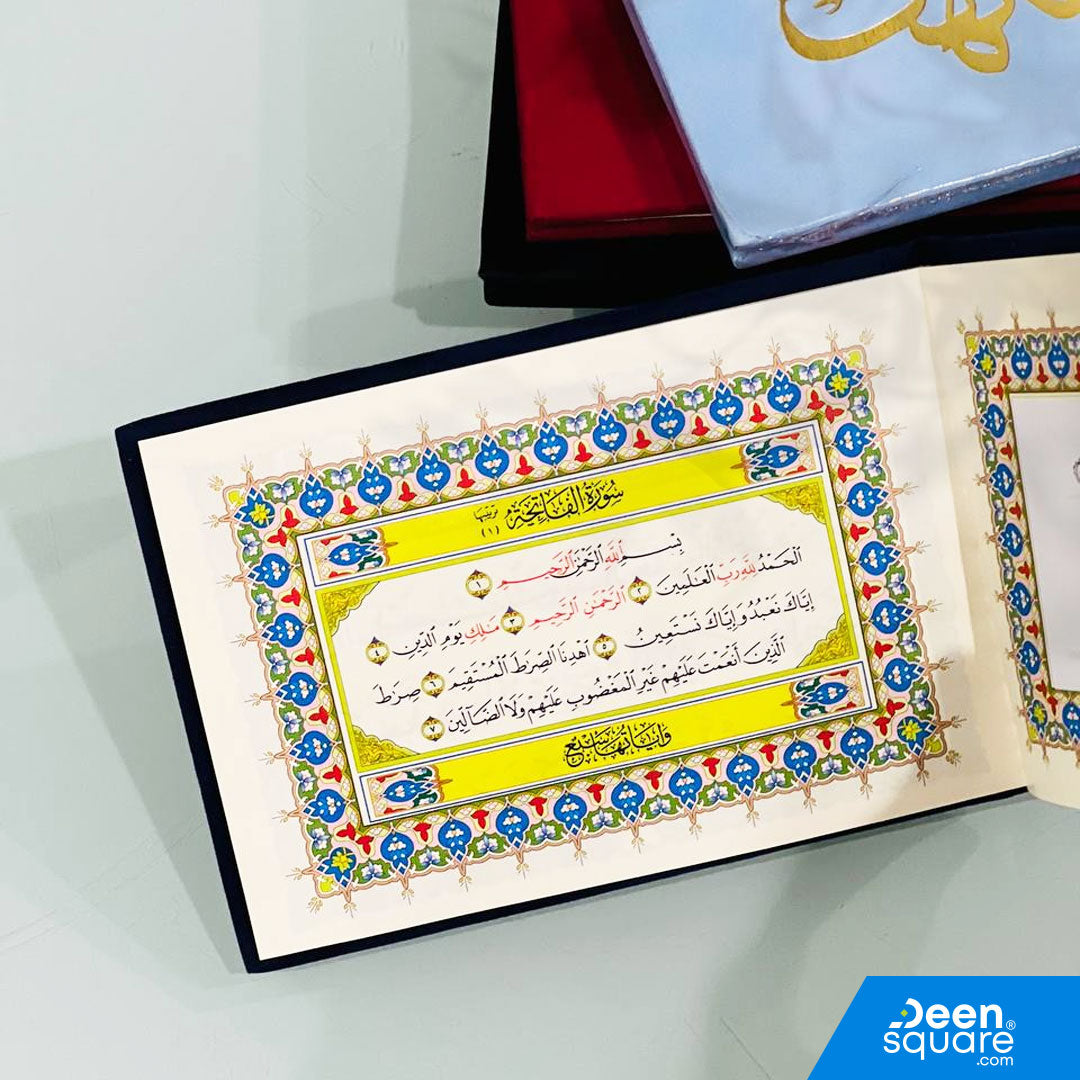 سُورَةُ الفَاتِحَةِ
تَرْتِيبُهَا
(١)
بِسْمِ اللَّهِ الرَّحْمَٰنِ الرَّحِيمِ ١
الْحَمْدُ لِلَّهِ رَبِّ الْعَٰلَمِينَ ٢ الرَّحْمَٰنِ الرَّحِيمِ ٣ مَٰلِكِ يَوْمِ الدِّينِ ٤
إِيَّاكَ نَعْبُدُ وَإِيَّاكَ نَسْتَعِينُ ٥ اهْدِنَا الصِّرَٰطَ الْمُسْتَقِيمَ ٦ صِرَٰطَ
الَّذِينَ أَنْعَمْتَ عَلَيْهِمْ غَيْرِ الْمَغْضُوبِ عَلَيْهِمْ وَلَا الضَّآلِّينَ ٧
وَآيَاتُهَا سَبْعٌ
Deen®
square
.com